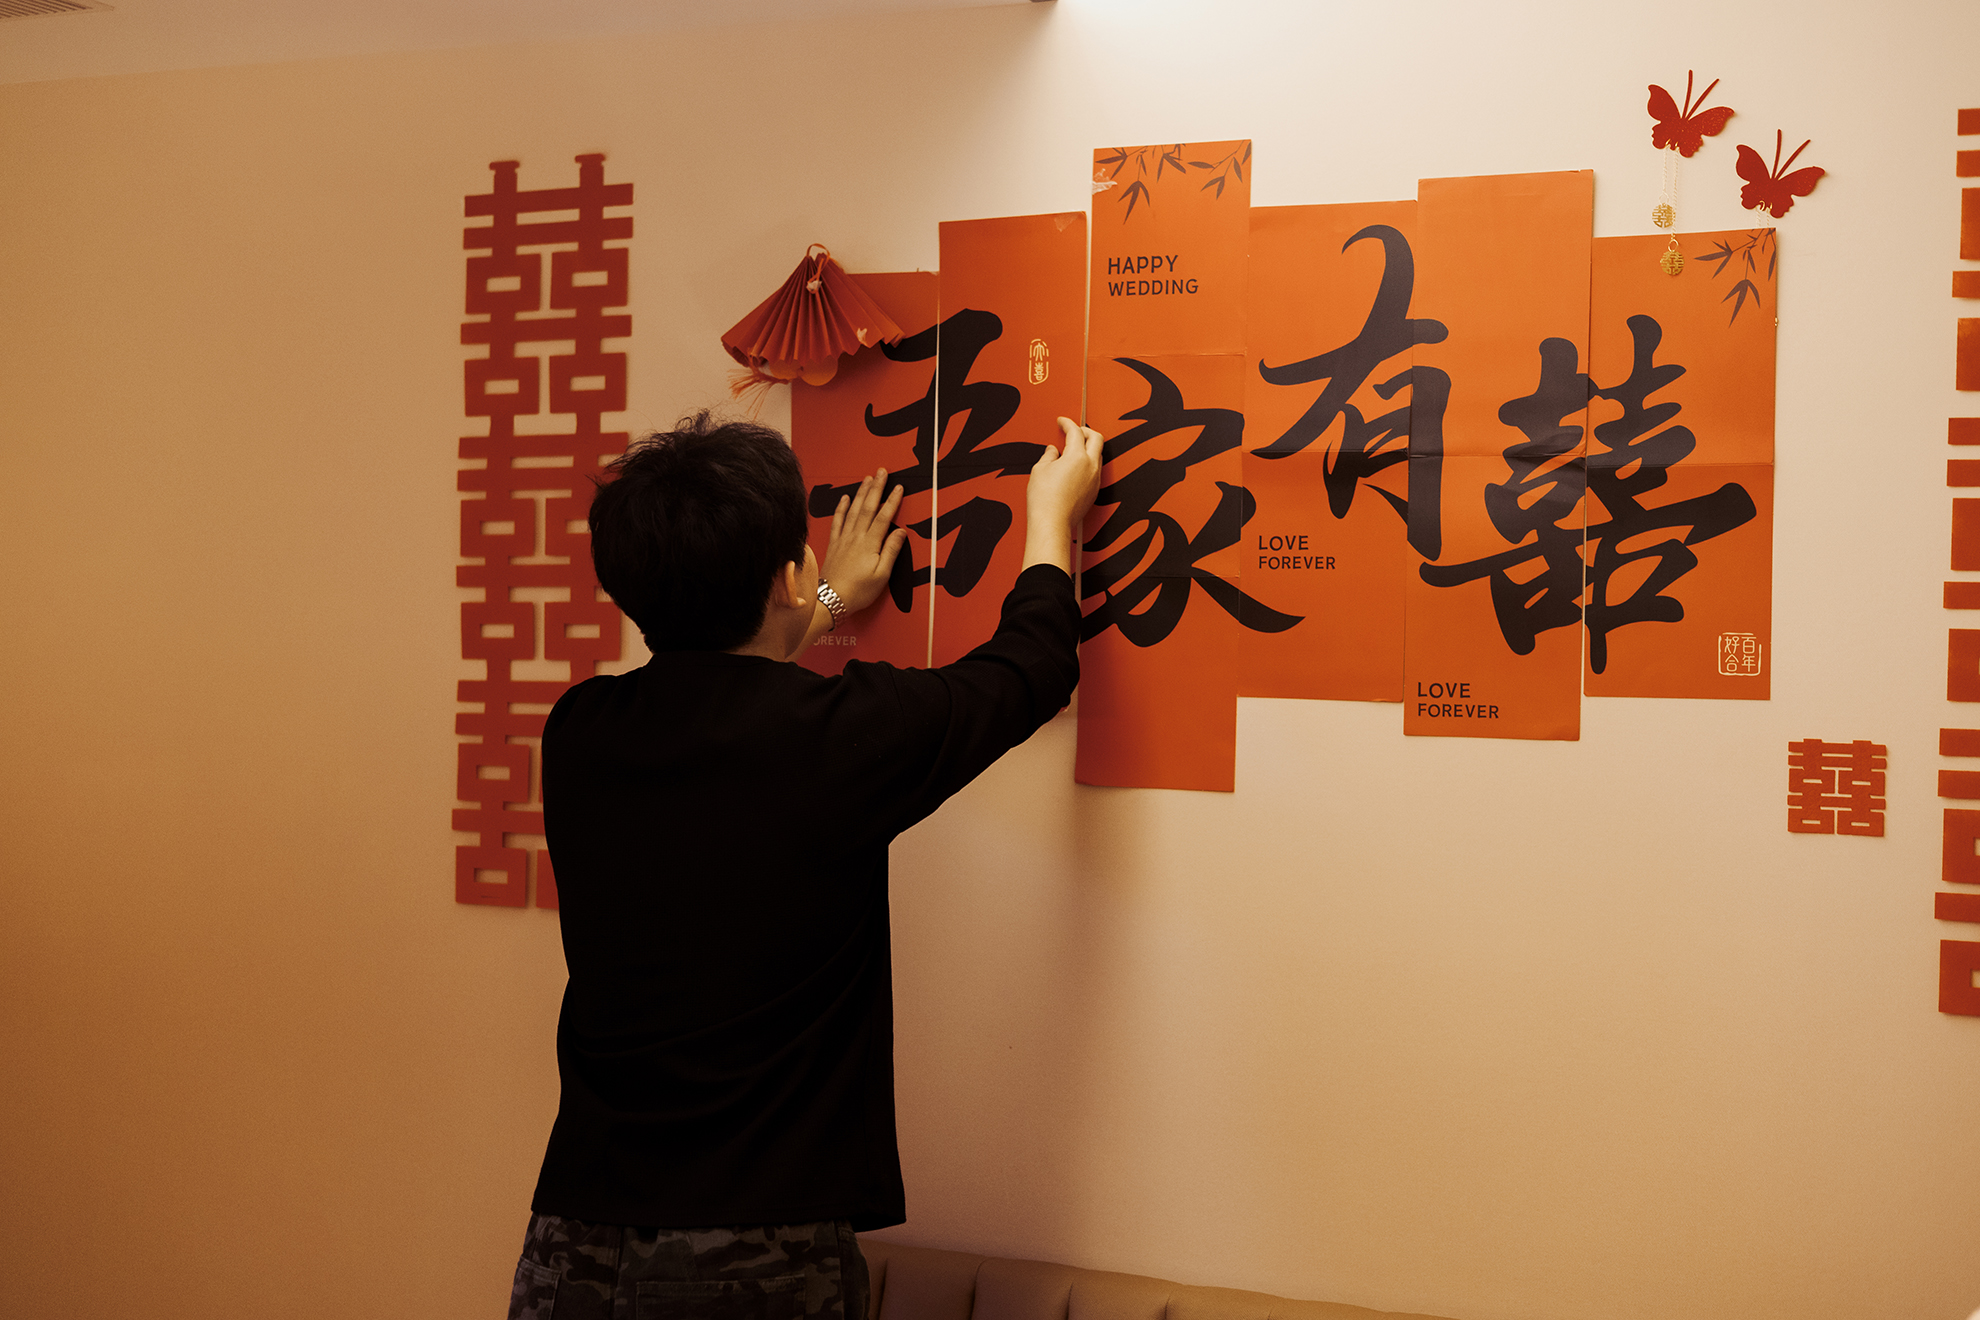 吾家有囍
HAPPY
WEDDING
LOVE
FOREVER
LOVE
FOREVER
OREVER
百年
好合
囍
囍
囍
囍
囍